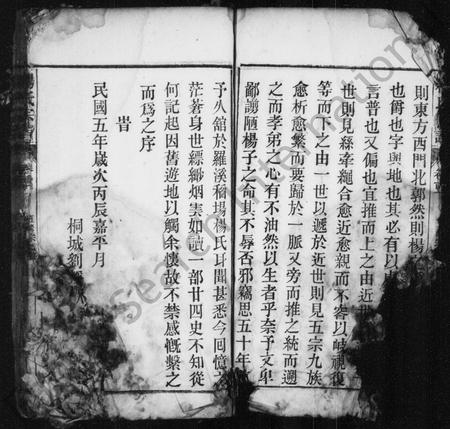 則東方西門北郭然則楊
也爵也字與地也其必有以
言普也又偏也宜推而上之由近
世則見絲牽繩合愈近愈親而不容以岐視復
等而下之由一世以遞於近世則見五宗九族
愈析愈繁而要歸於一脈又旁而推之統而遡
之而孝弟之心有不油然以生者乎奈予文卑
鄙謭陋楊子之命其不辱否邪竊思五十年
予久館於羅溪楊楊氏耳聞甚悉今囘憶
茫蒼身世縹緲烟雲如讀一部廿四史不知從
何記起因舊遊地以觸余懷故不禁感慨繫之
而爲之序
旹
民國五年歲次丙辰嘉平月
桐城劉